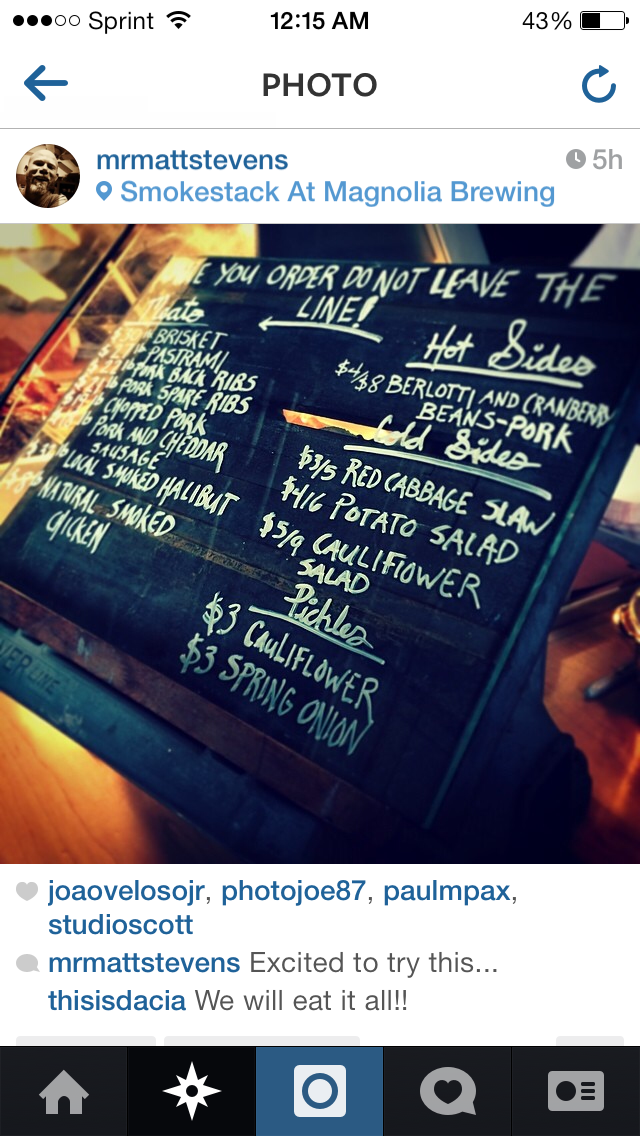 Sprint 12:15 AM 43%
PHOTO
mrmattstevens 5h
Smokestack At Magnolia Brewing
YOU ORDER DO NOT LEAVE THE
LINE!
Meats
BRISKET
PASTRAMI
PORK BACK RIBS
PORK SPARE RIBS
CHOPPED PORK
PORK AND CHEDDAR
SAUSAGE
LOCAL SMOKED HALIBUT
NATURAL SMOKED
CHICKEN
Hot Sides
$4/$8 BERLOTTI AND CRANBERRY
BEANS-PORK
Cold Sides
$3/5 RED CABBAGE SLAW
$4/6 POTATO SALAD
$5/9 CAULIFLOWER
SALAD
Pickles
$3 CAULIFLOWER
$3 SPRING ONION
joaovelosojr, photojoe87, paulmpax,
studioscott
mrmattstevens Excited to try this...
thisisdacia We will eat it all!!